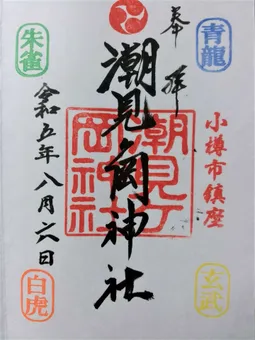 奉拝
青龍
小樽市鎮座
玄武
潮見ヶ岡神社
潮見ヶ岡神社
朱雀
令和五年八月六日
白虎